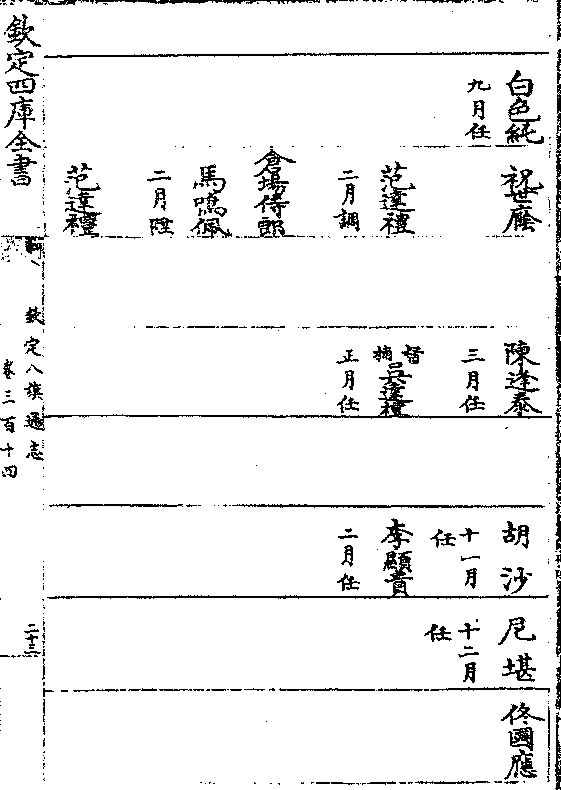 白色純
九月任
祝世廕
范達禮
二月調
倉場侍郎
馬鳴佩
二月陞
范達禮
陳逢泰
三月任
督捕
吳達禮
正月任
胡沙
十一月
任
李顯貴
二月任
尼堪
十二月
任
佟國應
欽定四庫全書
欽定八旗通志
卷三百十四
二十三